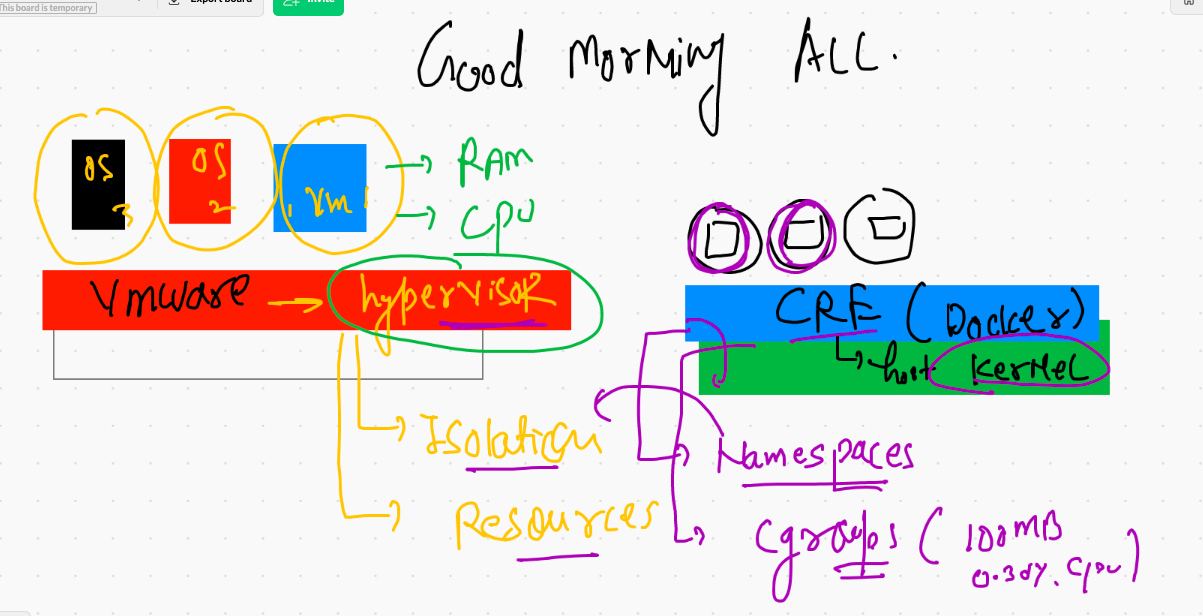 This board is temporary
Export board
Invite
Good Morning ALL.
OS
3
OS
2
Vm 1
RAM
CPU
Vmware
hypervisor
Isolation
Resources
CRE (Docker)
host Kernel
Namespaces
Cgroups (100MB
CPU)